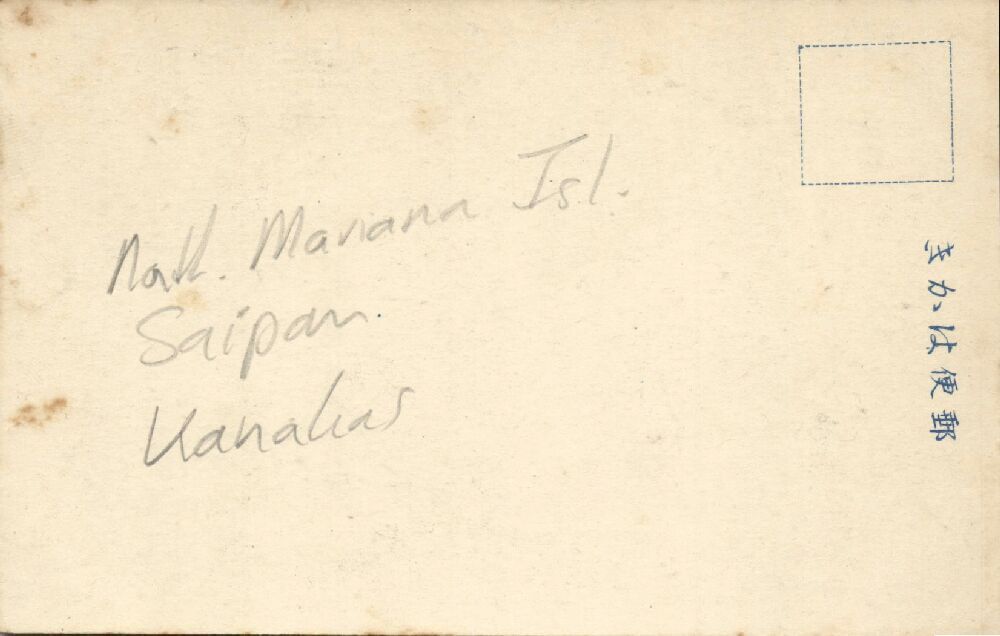 North. Mariana Isl.
Saipan.
Kanakas
きかは便郵